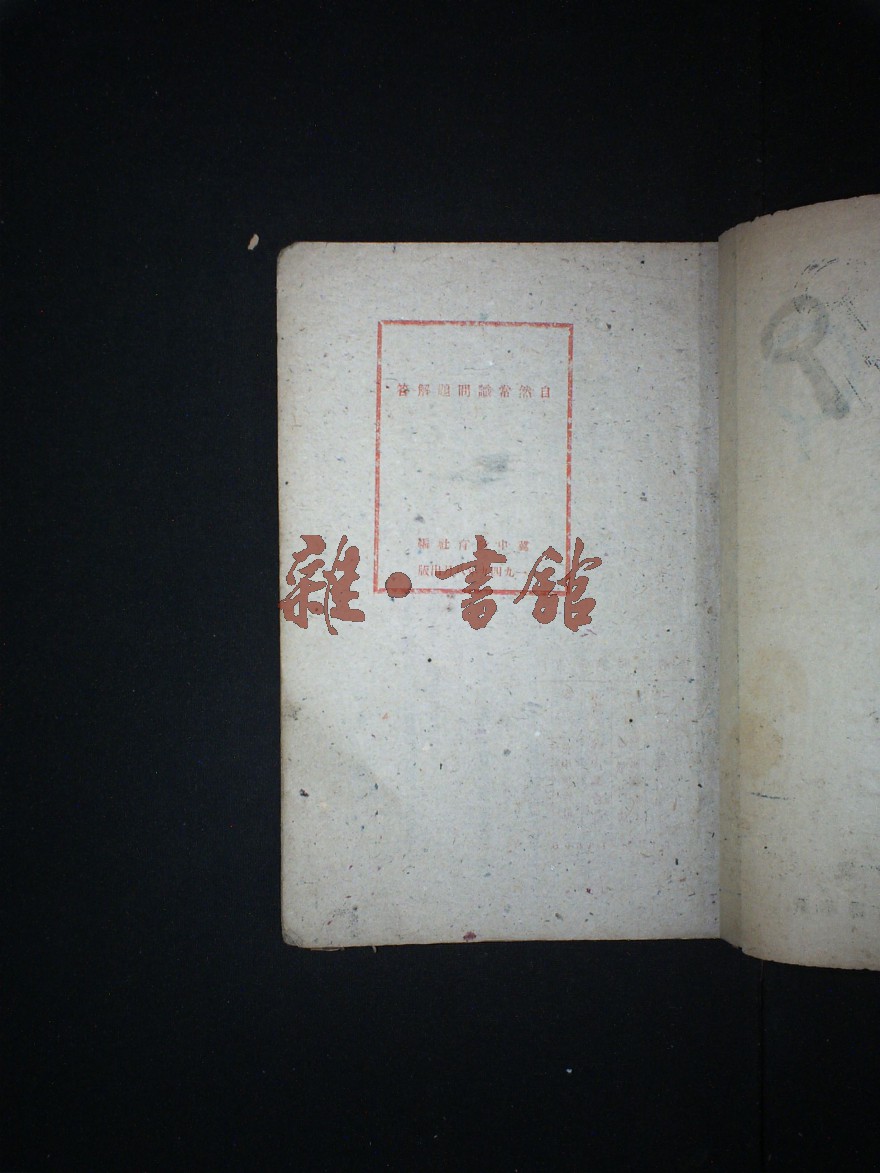 自然常識問題解答
冀中教育社編
一九四九年八月出版
雜·書館